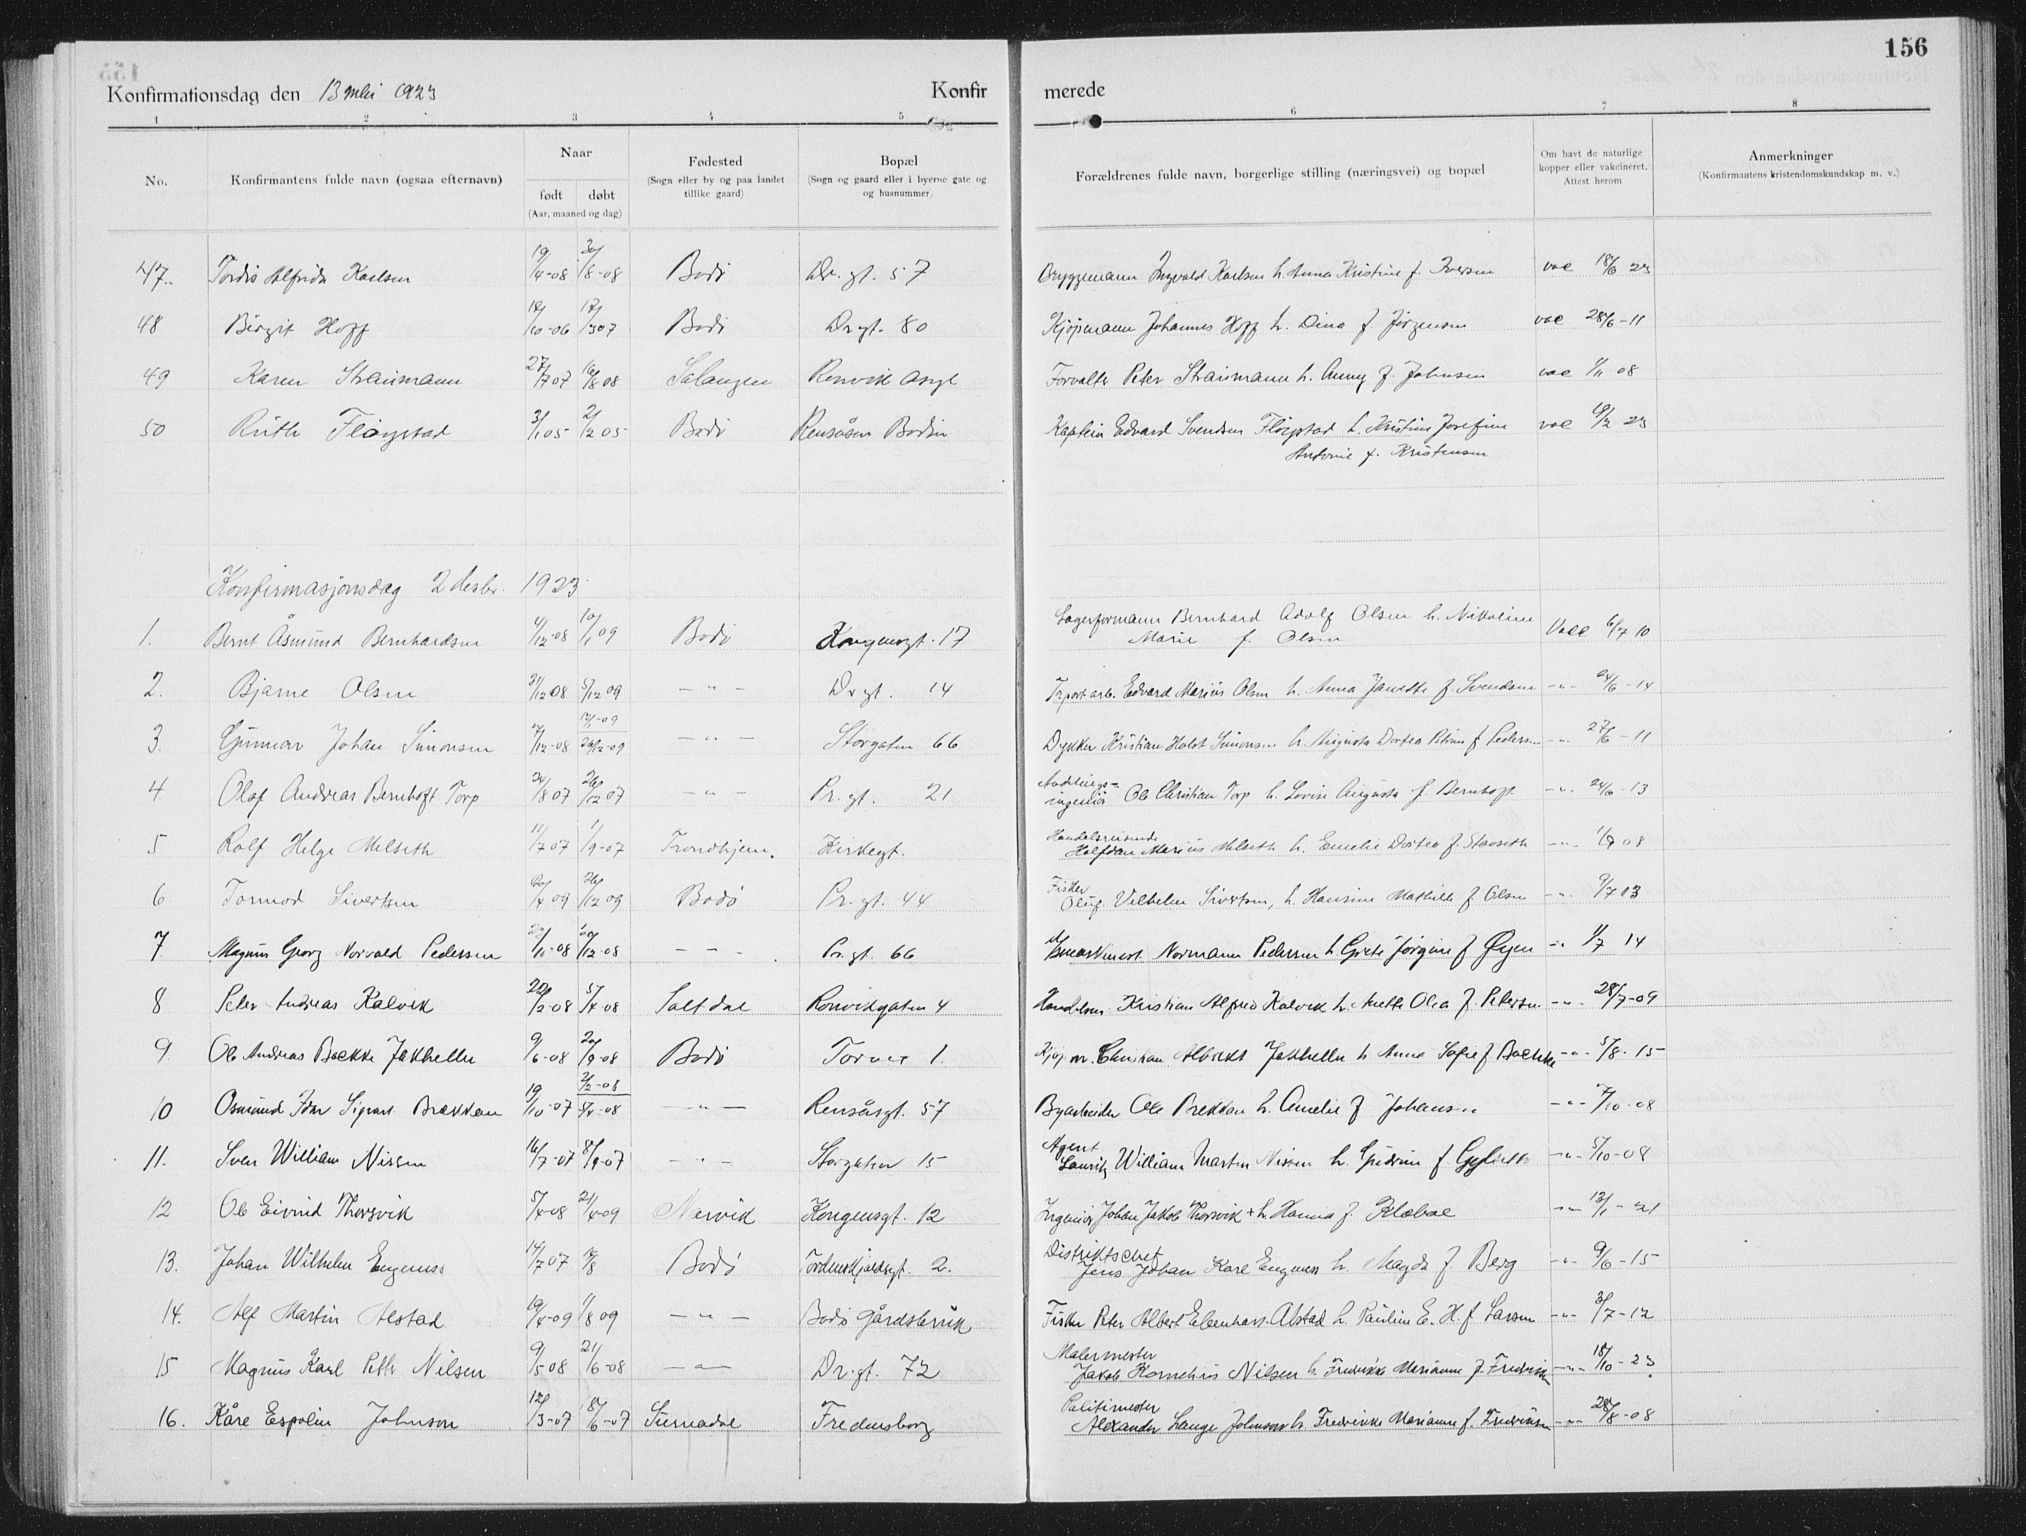 156
Konfirmationsdag den 13 mai 1923 Konfirmerede
1 2 3 4 5 6 7 8
No. Konfirmantens fulde navn (ogsaa efternavn) Naar født døbt (Aar, maaned og dag) Fødested (Sogn eller by og paa landet tillike gaard) Bopæl (Sogn og gaard eller i byerne gate og og husnummer) Forældrenes fulde navn, borgerlige stilling (næringsvei) og bopæl Om havt de naturlige kopper eller vakcineret. Attest herom Anmerkninger (Konfirmantens kristendomskundskap m. v.)
47. Tordis Alfrida Karlsen 19/4-08 30/8-08 Bodø Dr. gt. 57 Bryggemann Ingvald Karlsen h. Anna Kristine f. Iversen vac 18/6 23
48 Birgit Hoff 18/10-06 Bodø Dr gt. 80 Kjøpmann Johannes Hoff h. Dina f. Jørgensen vac 28/6-11
49 Karen Straumann 27/7 07 16/8 08 Salangen Rønvik Asyl Forvalter Peter Straumann h. Anny f. Johnsen vac 1/11 08
50 Ruth Fløgstad 3/1 05 2/2 05 Bodø Rensåsen Bodin Kaptein Edvard Svendsen Fløgstad h. Kristine Josefine vac 9/2 23
Antonie f. Kristensen
Konfirmasjonsdag 2 desbr. 1923
1. Bernt Åsmund Bernhardsen 4/12-08 10/1 09 Bodø Kongensgt. 17 Lagerformann Bernhard Adolf Olsen h. Nikoline Vacc 6/7 10
Marie f. Olsen
2. Bjarne Olsen 31/12 08 5/12 09 — " — Dr gt. 14 Trport arb. Edvard Marius Olsen h. Anna Janette f. Svendsen -"- 24/6-14
3. Gunnar Johan Simonsen 27/12-08 — " — Storgaten 66 Dykker Kristian Holst Simonsen h. Augusta Dortea Petrine f Pedersen -"- 27/6-11
4. Olaf Andreas Bernhoft Torp 24/8 07 26/12 07 — " — Pr. gt. 21
ingeniør Ole Christian Torp h. Lovise Augusta f. Bernhoft -"- 24/6-13
5 Rolf Helge Melseth 11/7 07 1/9-07 Trondhjem. Kirkegt. Handelsreisende
Halfdan Marius Melseth h. Emelie Dortea f. Stavseth -"- 1/9 08
6. Tormod Sivertsen 20/4 09 26/12 09 Bodø Pr. gt. 44 Fisker
Oluf Vilhelm Sivertsen, h. Hansine Mathilde f Olsen -"- 9/7 13
7 Magnus Georg Norvald Pedersen /11-08 /12-08 — — Pr. gt. 66 Normann Pedersen h Grete Jørgine f Øyen -"- 1/7 14
8 Peter Andreas Kalvik 20/2-08 5/4-08 Saltdal Rønvikgaten 4 Handelsm. Kristian Alfred Kalvik h. Anette Olea f. Petersen -"- 28/7-09
9. Ole Andreas Baekke Jakhelln 9/6-08 20/9-08 Bodø Torvet 1. Kjøpm. Christian Albrekt Jakhelln h Anna Sofie f Baekke -"- 5/8-15
10 Osmund Idar Sigvart Brækkan 19/10-07 2/2-08 5/4-08 — " — Rensåsgt. 57 Byarbeider Ole Brekkan h. Amelie f Johansen -"- 7/10-08
11. Sven William Nissen 16/7-07 8/9-07 — " — Storgaten 15 Agent
Lauritz William Marten Nissen h. Gudrun f. Gylseth -"- 5/10-08
12 Ole Eivind Thorsvik 5/4-08 21/4-09 Narvik Kongensgt. 12 Ingeniør Johan Jakob Thorsvik + h. Hanna f. Klæboe -"- 13/1-21
13. Johan Wilhelm Engenes 14/7 07 18/8 Bodø Tordenskjoldsgt. 2. Distriktschef
Jens Johan Karl Engenes h. Magda f Berg -"- 9/6-15
14. Alf Martin Alstad 19/4-09 1/8 09 — " — Bodø Gårdsbruk Fisker Peter Albert Ebenhars. Alstad h. Pauline E. H. f Larsen -"- 3/7-12
15 Magnus Karl Petter Nilsen 9/5 08 21/6-08 — " — Dr. gt. 72 Malermester
Jakob Kornelius Nilsen h Fredrikke Marianne f. Fredriksen -"- 18/10-23
16. Kåre Espolin Johnson 12/3-07 18/6-07 Surnadal Fredensborg Politimester
Alexander Lange Johnson h. Fredrikke Marianne f. Fredriksen -"- 28/8-08